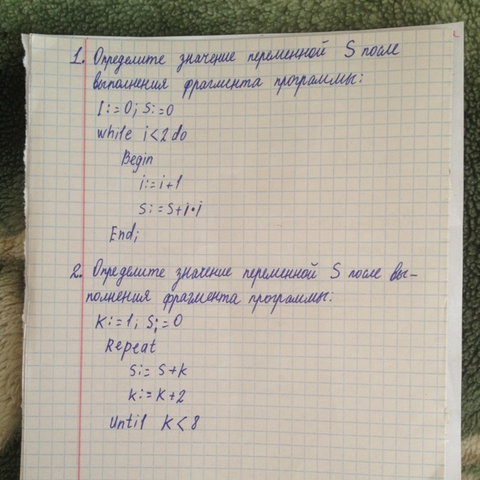 1. Определите значение переменной S после
выполнения фрагмента программы:
I:=0; S:=0
while i<2 do
Begin
i:=i+1
S:=S+i•i
End;
2. Определите значение переменной S после вы-
полнения фрагмента программы:
K:=1; S:=0
Repeat
S:=S+k
k:=k+2
Until K<8